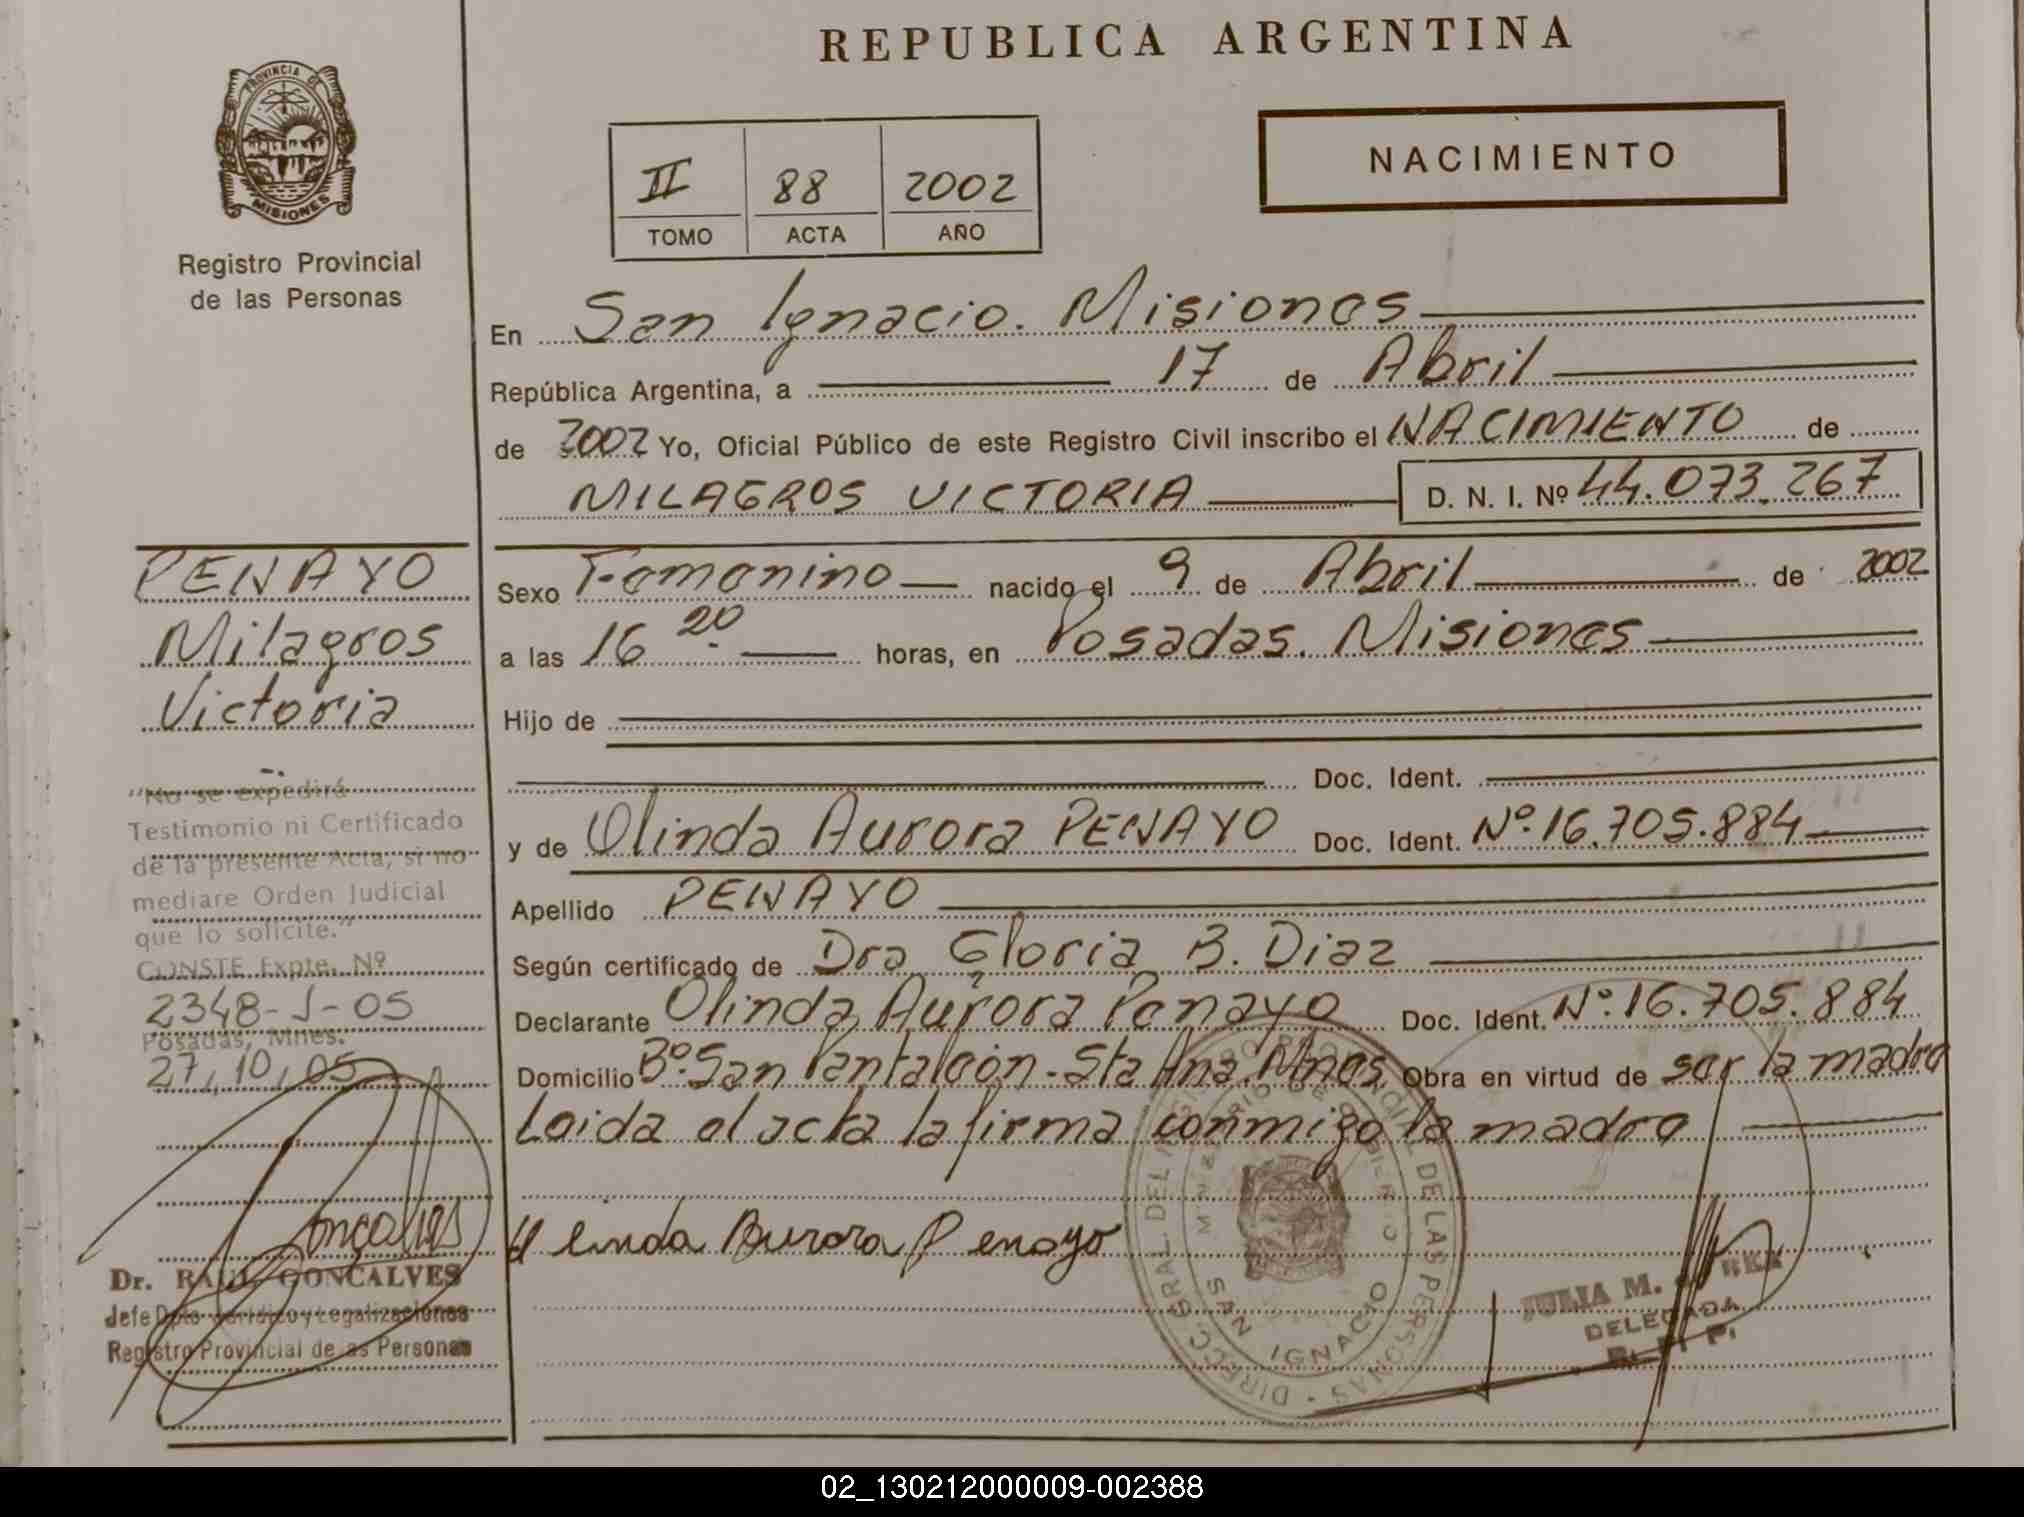 REPUBLICA ARGENTINA
PROVINCIA DE
MISIONES
Registro Provincial
de las Personas
II 88 2002
TOMO ACTA AÑO
NACIMIENTO
En San Ignacio. Misiones
República Argentina, a 17 de Abril
de 2002 Yo, Oficial Público de este Registro Civil inscribo el NACIMIENTO de
MILAGROS VICTORIA D. N. I. Nº 44.073.267
PENAYO
Milagros
Victoria
Sexo Femenino nacido el 9 de Abril de 2002
a las 16 20 horas, en Posadas. Misiones
Hijo de
Doc. Ident.
y de Olinda Aurora PENAYO Doc. Ident. Nº.16.705.884
Apellido PENAYO
Según certificado de Dra Gloria B. Diaz
Declarante Olinda Aurora Penayo Doc. Ident. Nº.16.705.884
Domicilio Bº.San Pantaleón-Sta Ana.Mnes. Obra en virtud de ser la madre
Leida el acta la firma conmigo la madre
"No se expedirá
Testimonio ni Certificado
de la presente Acta, si no
mediare Orden Judicial
que lo solicite."
CONSTE Expte. Nº
2348-J-05
Posadas, Mnes.
27,10,05
Goncalves
Dr. RAUL GONCALVES
Jefe Dpto Jurídico y Legalizaciones
Registro Provincial de las Personas
Olinda Aurora Penayo
DIRECC. GRAL. DEL REGISTRO PROVINCIAL DE LAS PERSONAS
MINISTERIO DE GOBIERNO
SAN IGNACIO
JULIA M.
DELEGADA
R. P. P.
02_130212000009-002388